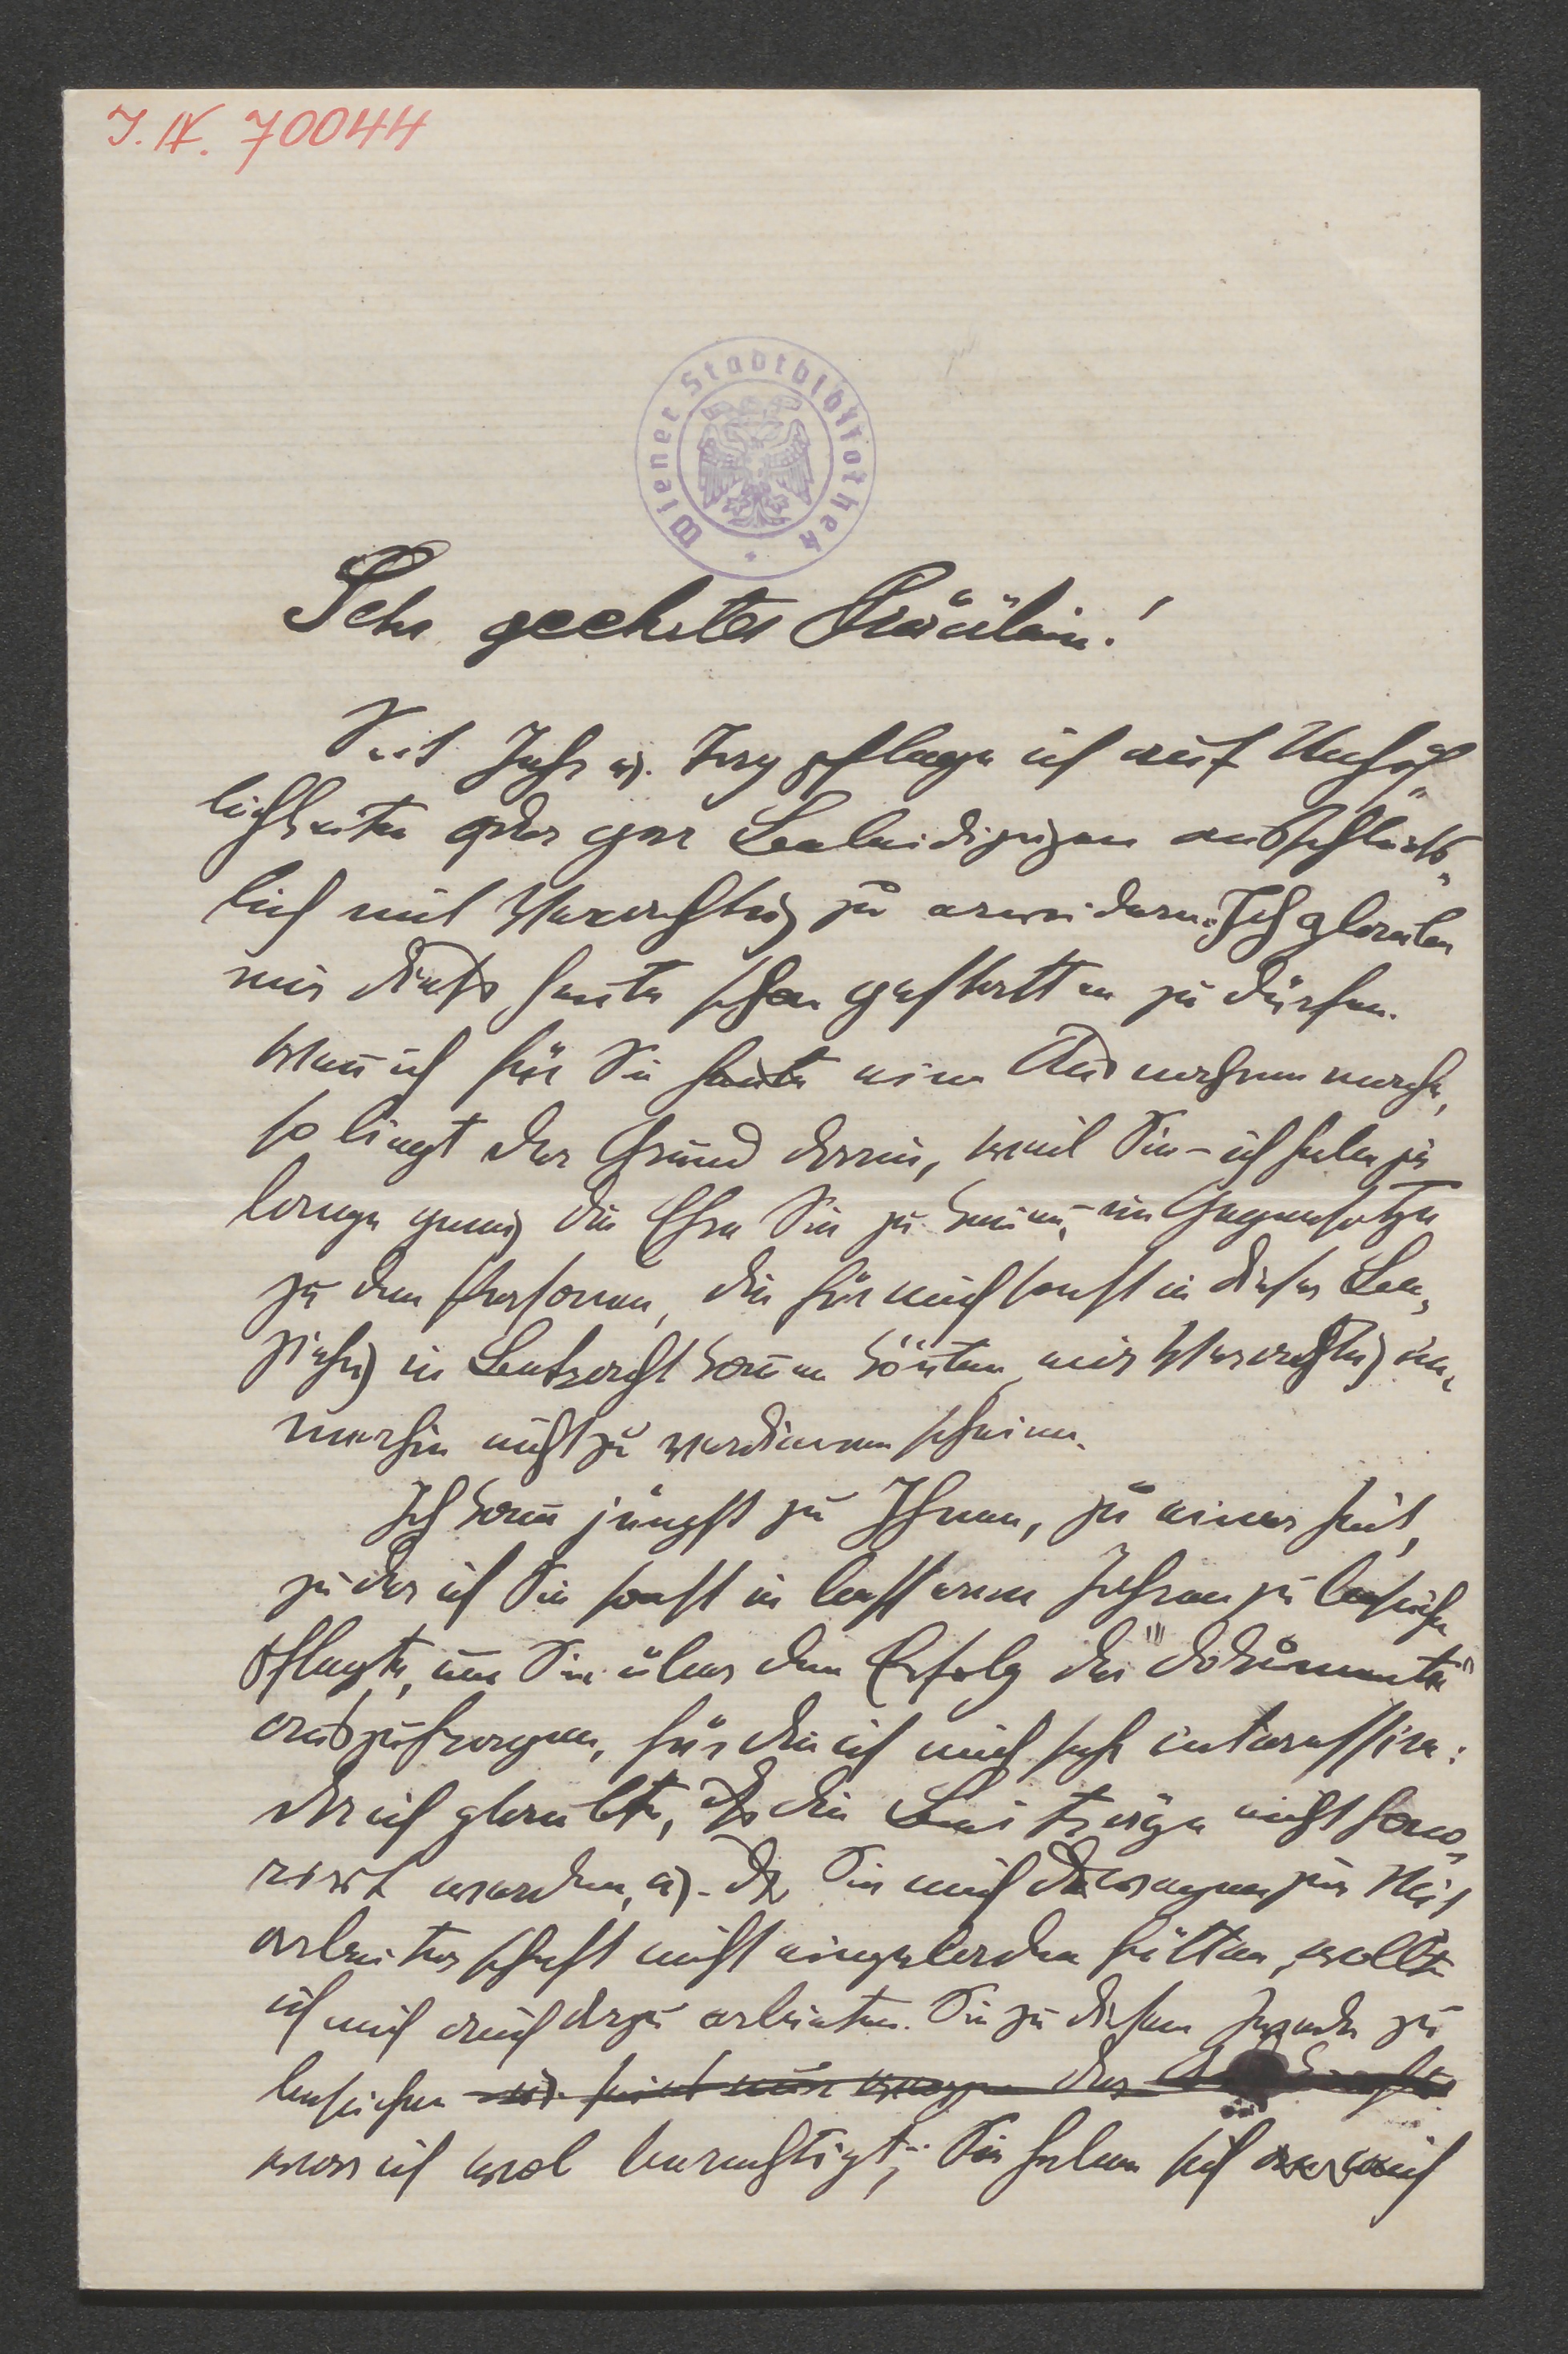 I.N. 70044
Wiener Stadtbibliothek
Sehr geehrtes Fräulein!
Seit Jahr u. Tag pflege ich auf Unhöf„
lichkeiten oder gar Beleidigungen ausschließ„
lich mit Verachtung zu erwidern. Ich glaube
mir dieß heute schon gestatten zu dürfen.
Wenn ich für Sie heute eine Ausnahme mache,
so liegt der Grund darin, weil Sie – ich habe ja
lange genug die Ehre Sie zu kennen, – im Gegensatze
zu den Personen, die für mich sonst in dieser Be„
ziehung in Betracht kommen könnten, mir Verachtung im„
merhin nicht zu verdienen scheinen.
Ich kam jüngst zu Ihnen, zu einer Zeit,
zu der ich Sie sonst in besseren Jahren zu besuchen
pflegte, um Sie über den Erfolg der "Dokumente"
auszufragen, für die ich mich sehr interessire:
da ich glaubte, daß die Beiträge nicht hono„
rirt werden, u. daß Sie mich deswegen zur Mit
arbeiterschaft nicht eingeladen hätten, wollte
ich mich auch dazu erbieten. Sie zu diesem Zwecke zu
besuchen und nur wegen der
war ich wol berechtigt; Sie haben sich mich